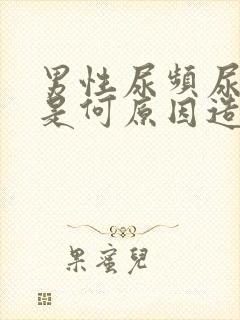 男性尿頻尿
是何原因造
果蜜兒